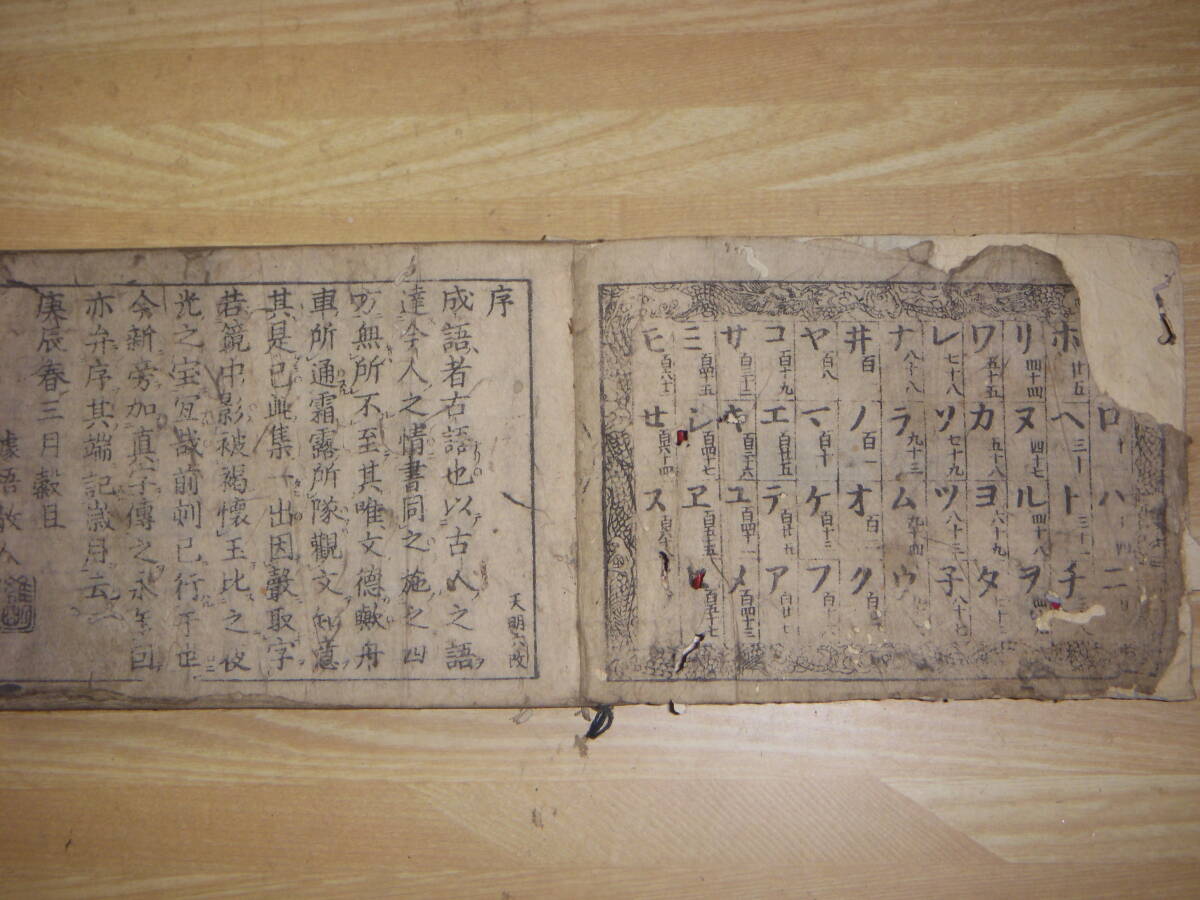 ロ ハ ニ
ホ 廿五 ヘ ト チ
リ 四十四 ヌ 四十七 ル 四十八 ヲ
ワ 五十五 カ 五十八 ヨ 六十九 タ
レ 七十八 ツ 七十九 ツ 八十三 子
ナ 八十八 ラ 九十三 ム 九十四 ウ
井 百 ノ 百一 オ ク
ヤ 百八 マ 百十 ケ 百十三 フ
コ 百十九 エ 百廿五 テ ア
サ 百三十三 キ 百三十六 ユ 百四十一 メ 百四十三
ミ 百四十五 シ 百四十七 ヱ 百五十五 百五十七
モ セ 百六十四 ス
序
天明六改
成語者古語也以古人之語
達今人之情書同之施之四
方無所不至其唯文德轍舟
車所通霜露所隊觀文知意
其是已此集一出因聲取字
若鏡中影被褐懷玉比之夜
光之宝宜哉前刻已行于世
今新旁加真字傳之永年因
亦弁序其端記歲月云
庚辰春三月穀旦